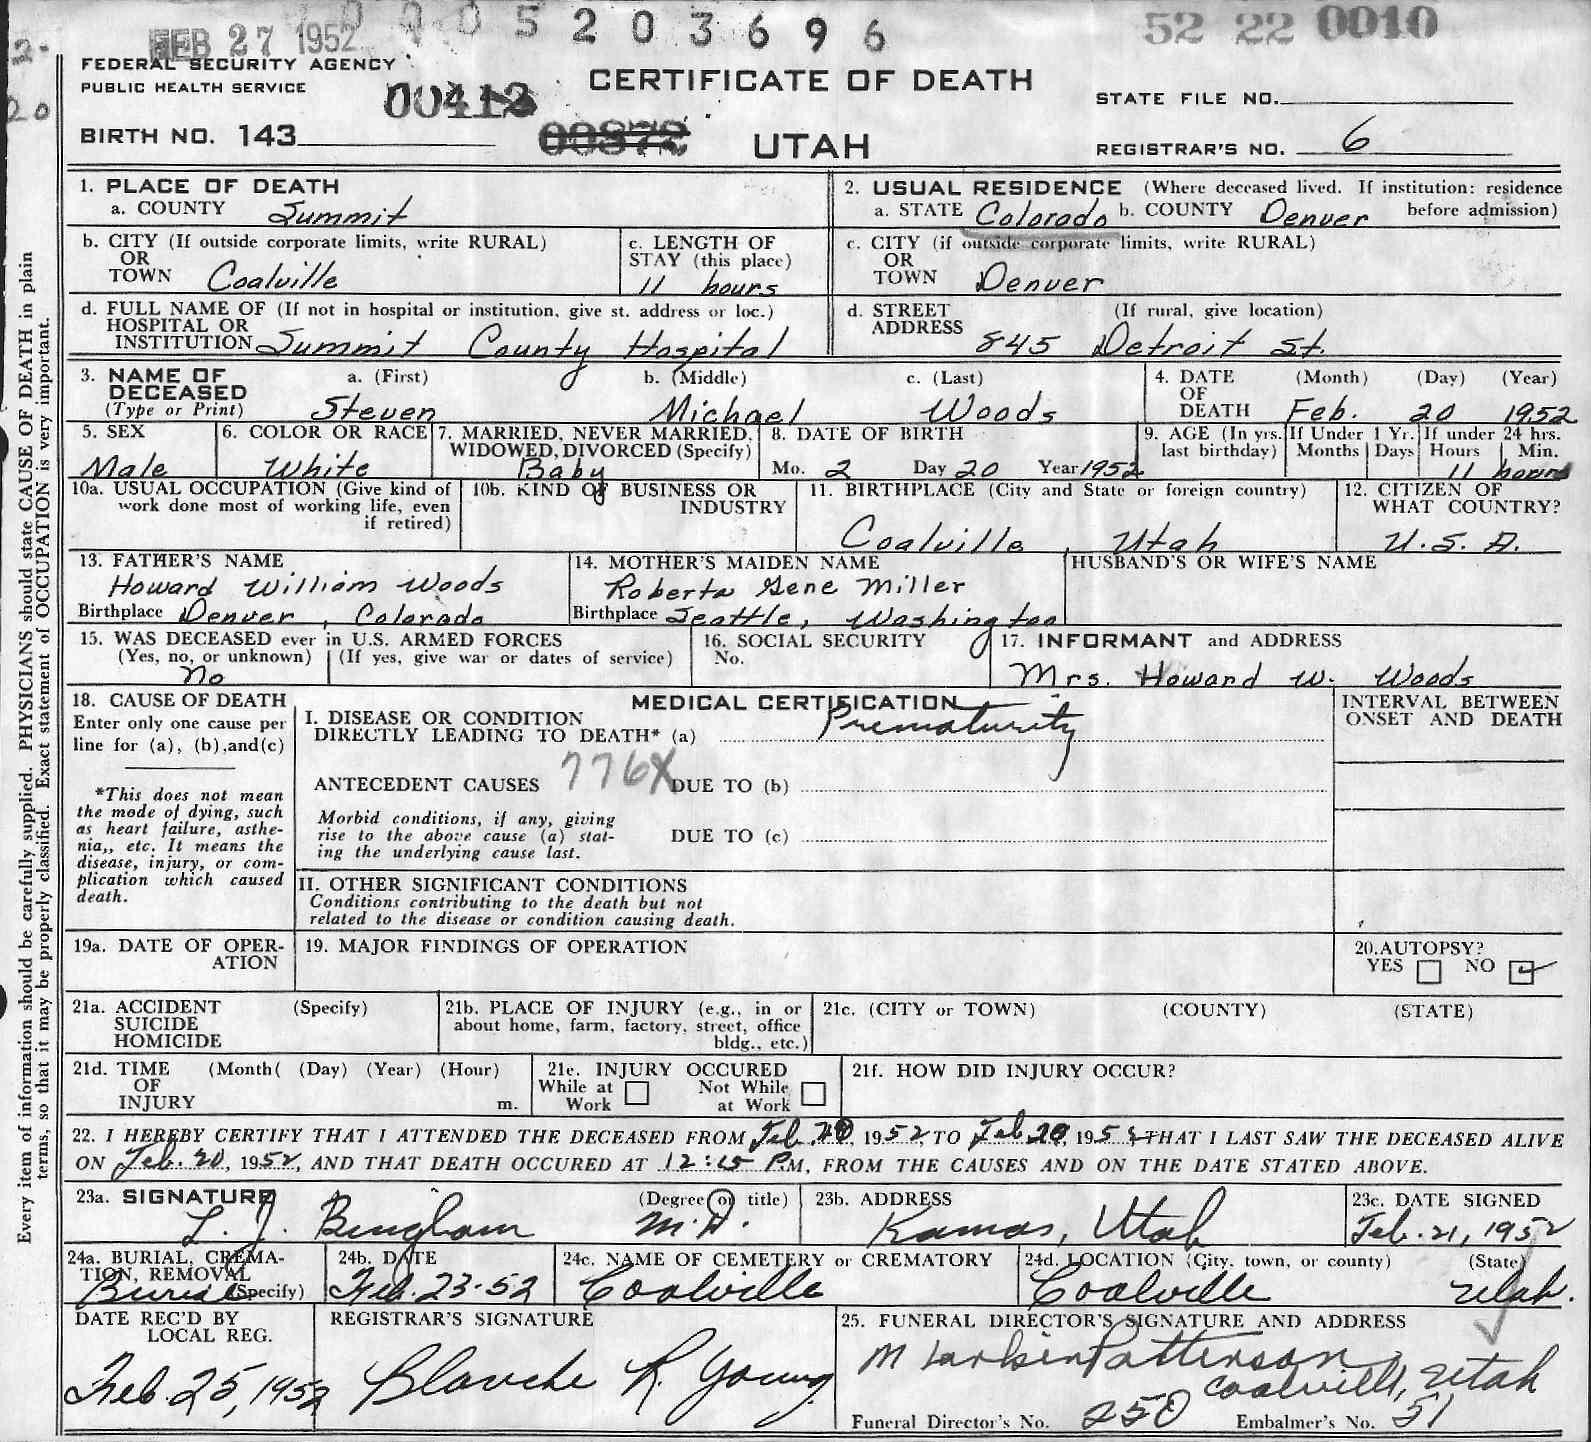 FEB 27 1952 0005203696 52 22 0010
FEDERAL SECURITY AGENCY
PUBLIC HEALTH SERVICE
CERTIFICATE OF DEATH
STATE FILE NO.
BIRTH NO. 143
UTAH
REGISTRAR'S NO. 6
1. PLACE OF DEATH
a. COUNTY Summit
2. USUAL RESIDENCE (Where deceased lived. If institution: residence before admission)
a. STATE Colorado b. COUNTY Denver
b. CITY (If outside corporate limits, write RURAL)
OR
TOWN Coalville
c. LENGTH OF
STAY (this place)
11 hours
c. CITY (if outside corporate limits, write RURAL)
OR
TOWN Denver
d. FULL NAME OF (If not in hospital or institution, give st. address or loc.)
HOSPITAL OR
INSTITUTION Summit County Hospital
d. STREET (If rural, give location)
ADDRESS 845 Detroit St.
3. NAME OF a. (First) b. (Middle) c. (Last)
DECEASED
(Type or Print) Steven Michael Woods
4. DATE (Month) (Day) (Year)
OF
DEATH Feb. 20 1952
5. SEX
Male
6. COLOR OR RACE
White
7. MARRIED, NEVER MARRIED,
WIDOWED, DIVORCED (Specify)
Baby
8. DATE OF BIRTH
Mo. 2 Day 20 Year 1952
9. AGE (In yrs.
last birthday)
If Under 1 Yr.
Months Days
If under 24 hrs.
Hours Min.
11 hours
10a. USUAL OCCUPATION (Give kind of
work done most of working life, even
if retired)
10b. KIND OF BUSINESS OR
INDUSTRY
11. BIRTHPLACE (City and State or foreign country)
Coalville, Utah
12. CITIZEN OF
WHAT COUNTRY?
U.S.A.
13. FATHER'S NAME
Howard William Woods
Birthplace Denver, Colorado
14. MOTHER'S MAIDEN NAME
Roberta Gene Miller
Birthplace Seattle, Washington
HUSBAND'S OR WIFE'S NAME
15. WAS DECEASED ever in U.S. ARMED FORCES
(Yes, no, or unknown) (If yes, give war or dates of service)
No
16. SOCIAL SECURITY
No.
17. INFORMANT and ADDRESS
Mrs. Howard W. Woods
18. CAUSE OF DEATH
Enter only one cause per
line for (a), (b), and (c)
*This does not mean
the mode of dying, such
as heart failure, asthe-
nia,, etc. It means the
disease, injury, or com-
plication which caused
death.
MEDICAL CERTIFICATION
I. DISEASE OR CONDITION
DIRECTLY LEADING TO DEATH* (a) Prematurity
ANTECEDENT CAUSES 776X DUE TO (b)
Morbid conditions, if any, giving
rise to the above cause (a) stat-
ing the underlying cause last.
DUE TO (c)
II. OTHER SIGNIFICANT CONDITIONS
Conditions contributing to the death but not
related to the disease or condition causing death.
INTERVAL BETWEEN
ONSET AND DEATH
19a. DATE OF OPER-
ATION
19. MAJOR FINDINGS OF OPERATION
20. AUTOPSY?
YES NO
21a. ACCIDENT (Specify)
SUICIDE
HOMICIDE
21b. PLACE OF INJURY (e.g., in or
about home, farm, factory, street, office
bldg., etc.)
21c. (CITY or TOWN) (COUNTY) (STATE)
21d. TIME (Month( (Day) (Year) (Hour)
OF
INJURY m.
21e. INJURY OCCURED
While at Not While
Work at Work
21f. HOW DID INJURY OCCUR?
22. I HEREBY CERTIFY THAT I ATTENDED THE DECEASED FROM Feb. 20, 1952 TO Feb 20, 1952 THAT I LAST SAW THE DECEASED ALIVE
ON Feb. 20, 1952, AND THAT DEATH OCCURED AT 12:15 P.M, FROM THE CAUSES AND ON THE DATE STATED ABOVE.
23a. SIGNATURE (Degree or title)
L. J. Bingham M.D.
23b. ADDRESS
Kamas, Utah
23c. DATE SIGNED
Feb. 21, 1952
24a. BURIAL, CREMA-
TION, REMOVAL
(Specify)
Burial
24b. DATE
Feb. 23-52
24c. NAME OF CEMETERY or CREMATORY
Coalville
24d. LOCATION (City, town, or county) (State)
Coalville Utah.
DATE REC'D BY
LOCAL REG.
Feb. 25, 1952
REGISTRAR'S SIGNATURE
Blanche R. Young
25. FUNERAL DIRECTOR'S SIGNATURE AND ADDRESS
M Patterson
Coalville, Utah
Funeral Director's No. 250 Embalmer's No. 51
Every item of information should be carefully supplied. PHYSICIANS should state CAUSE OF DEATH in plain
terms, so that it may be properly classified. Exact statement of OCCUPATION is very important.